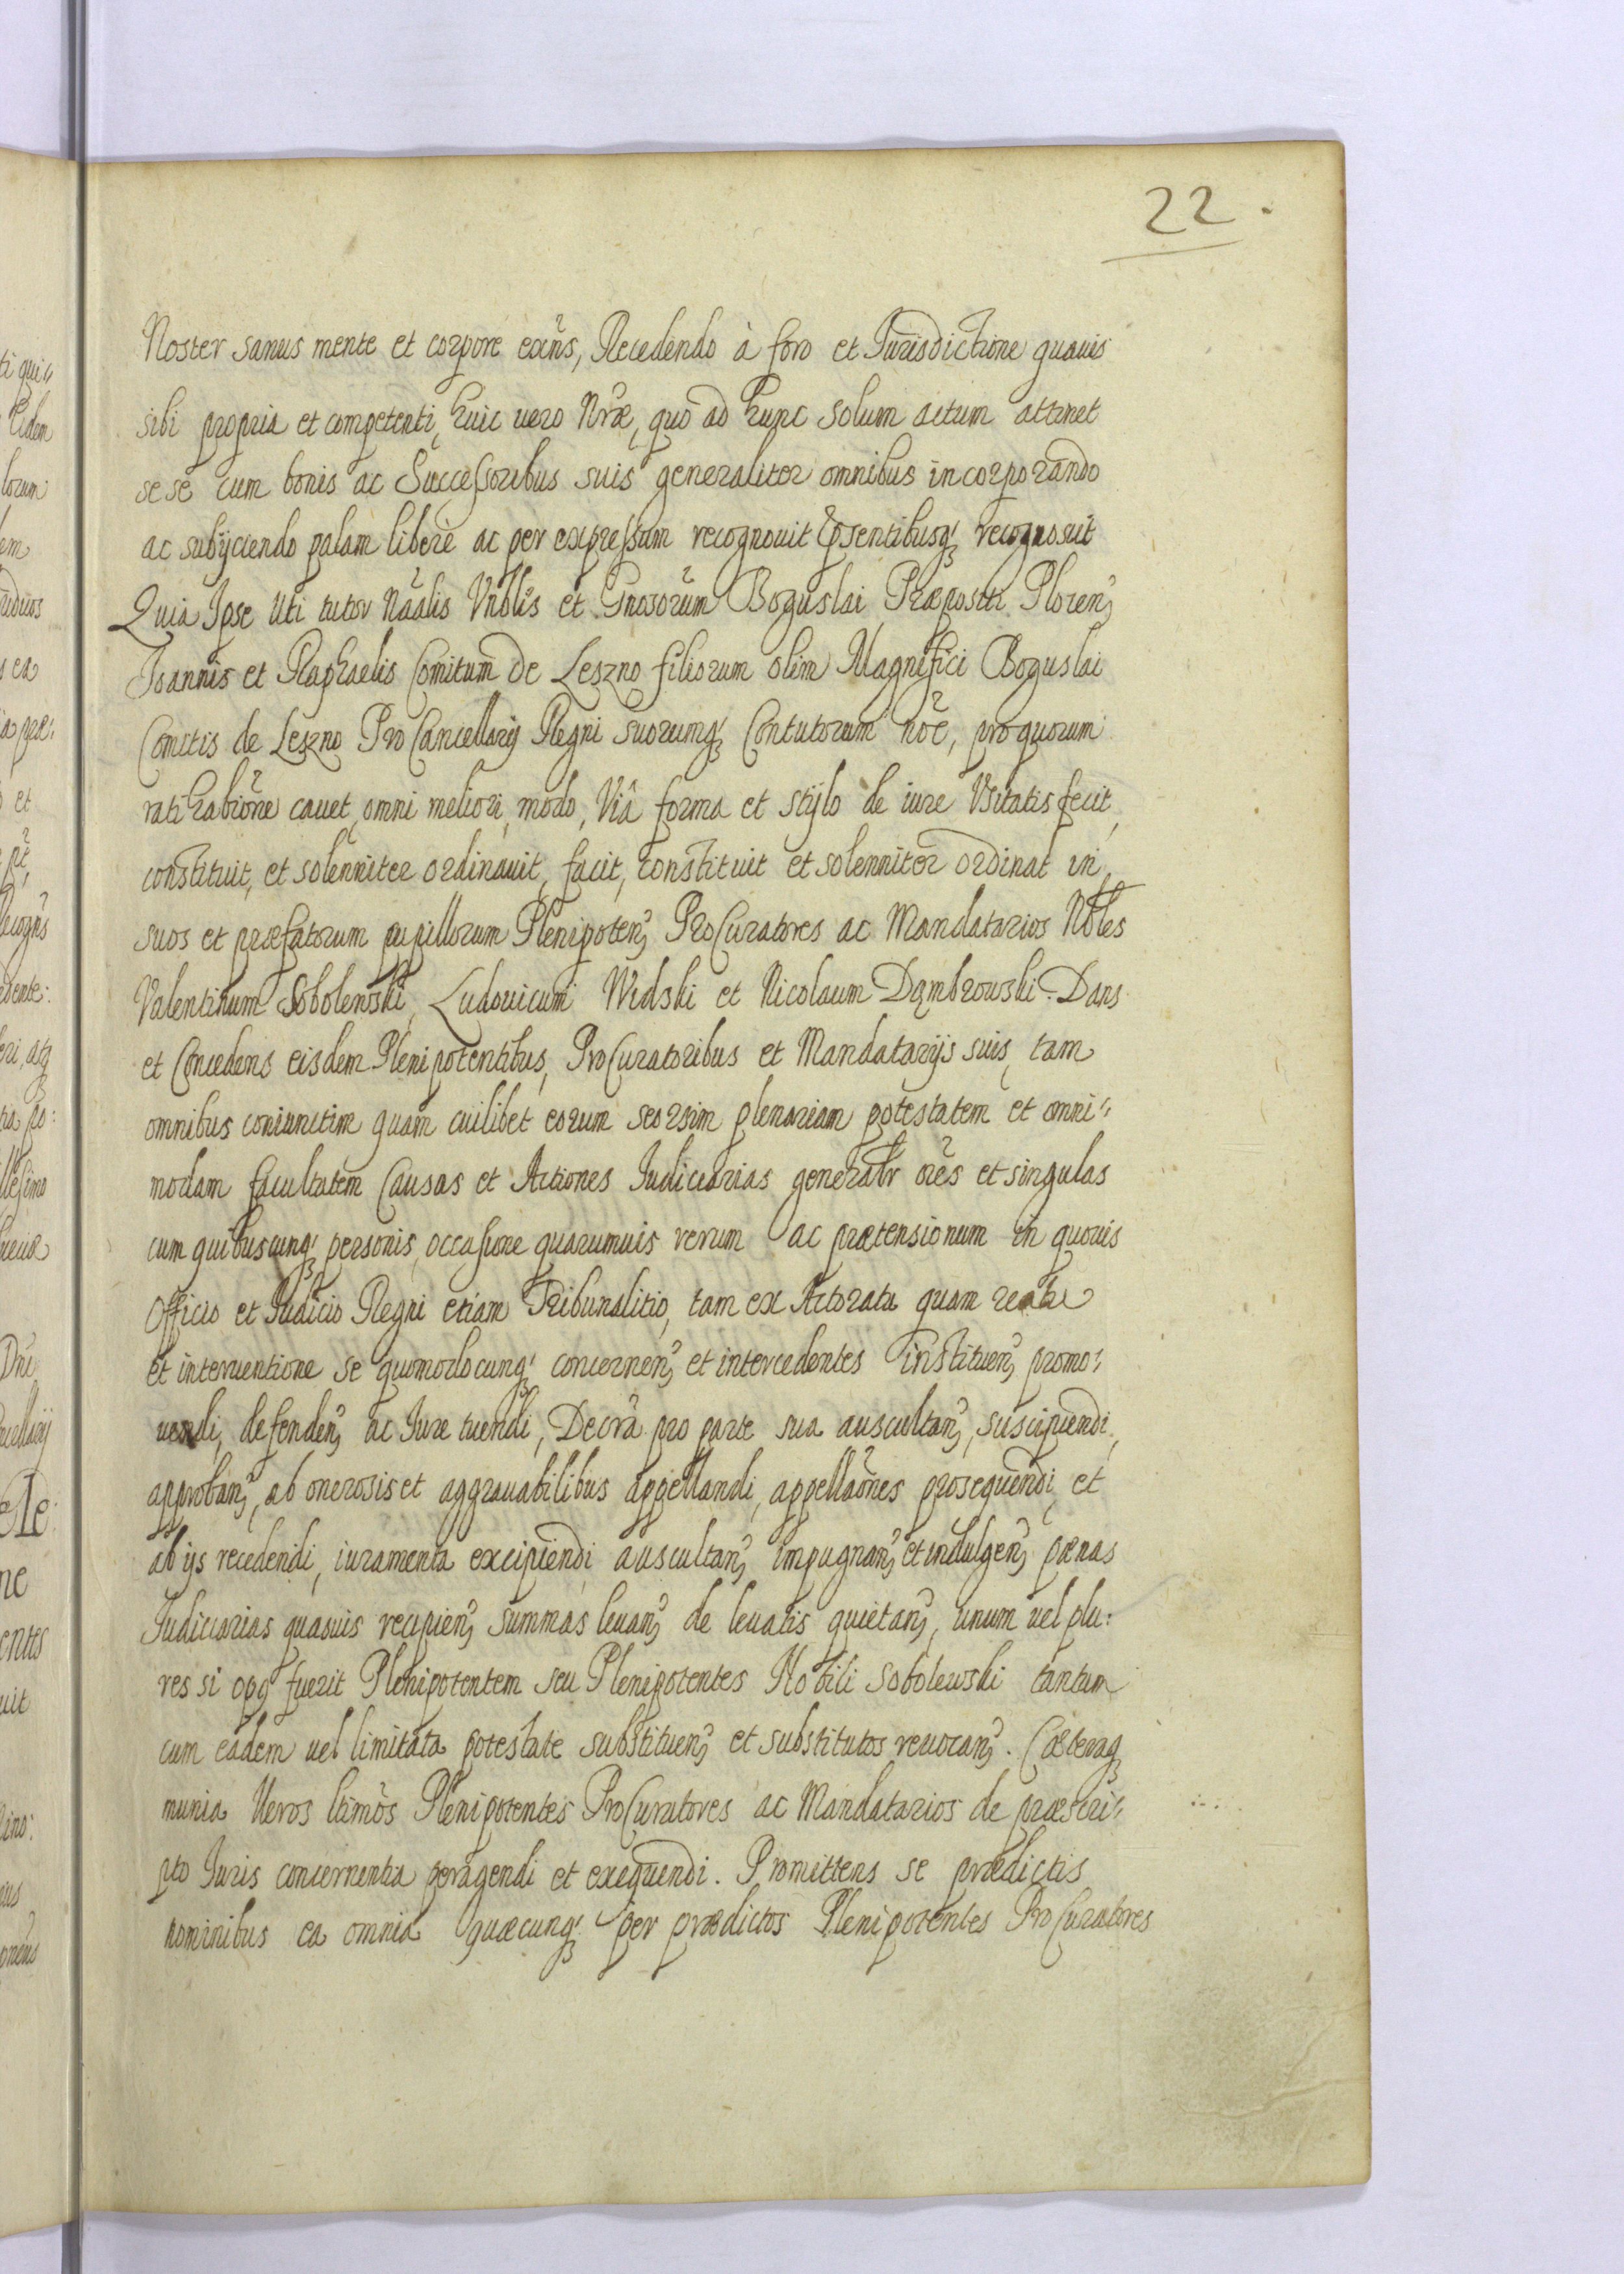 22.
Noster sanus mente et corpore exn̄s, Recedendo à foro et Jurisdictione quavis
sibi propria et competenti, huic vero Nr̄æ, quo ad hunc solum actum attinet
sese cum bonis ac Successoribus suis generaliter omnibus incorporando
ac subijciendo palam liberè ac per expressum recognovit p̄sentibusq; recognoscit
Quia Ipse Uti tutor Nāalis Vnōlis et Gnosorum Boguslai Præpositi Plocen;
Joannis et Raphaelis Comitum de Leszno filiorum olim Magnifici Boguslai
Comitis de Leszno ProCancellarij Regni suorumq; Contutorum nōe, pro quorum
ratihabiōne cavet, omni meliori, modo, Viâ forma et stylo de iure Usitatis fecit,
constituit, et solenniter ordinavit, facit, constituit et solenniter ordinat in
suos et præfatorum pupillorum Plenipoten; ProCuratores ac Mandatarios Nōles
Valentinum Sobolewski, Ludovicum Wolski et Nicolaum Dąmbrowski. Dans
et Concedens eisdem Plenipotentibus, ProCuratoribus et Mandatarijs suis, tam
omnibus coniunctim quam cuilibet eorum seorsim plenariam potestatem et omni"
modam facultatem Causas et Actiones Judiciarias generalr ōes et singulas
cum quibuscunq; personis, occasione quarumvis rerum ac prætensionum in quovis
Officio et Judicio Regni etiam Tribunalitio, tam ex Actoratu quam reatu
et interventione se quomodocunq; concernen; et intercedentes instituen; promo"
vendi, defenden; ac Jure tuendi, Decrā pro parte sua auscultan;, suscipiendi,
approban;, ab onerosis et aggravabilibus appellandi, appellaōnes prosequendi, et
ab ijs recedendi, iuramenta excipiendi auscultan; impugnan; et indulgen; pœnas
Judiciarias quasvis recipien; summas levan; de levatis quietan; unum vel plu:
res si opg fuerit Plenipotentem seu Plenipotentes Nobili Sobolewski tantum
cum eadem vel limitata potestate substituen; et substitutos revocan;. Cæteraq;
munia Veros ltimōs Plenipotentes ProCuratores ac Mandatarios de præscri"
pto Juris concernentia peragendi et exequendi. Promittens se prædictis
nominibus ea omnia quæcunq; per prædictos Plenipotentes ProCuratores